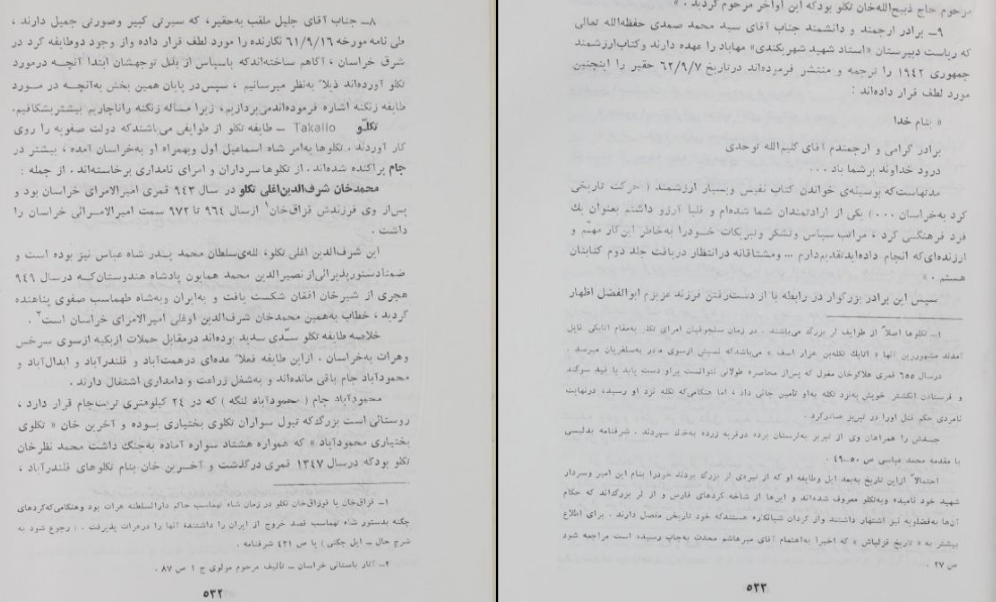 ۸ــ جناب آقای جلیل ملقب به‌حقیر، که سیرتی کبیر وصورتی جمیل دارند ،
طی نامه مورخه ۶۱/۹/۱۶ نگارنده را مورد لطف قرار داده واز وجود دوطایفه کرد در
شرق خراسان ، آگاهم ساخته‌اندکه باسپاس از بذل توجهشان ابتدا آنچه درمورد
تکلو آورده‌اند ذیلا ً به‌نظر میرسانیم ، سپس‌در پایان همین بخش به‌آنچه در مورد
طایفه زنگنه اشاره فرموده‌اندمی‌پردازیم، زیرا مساله زنگنه راناچاریم بیشتربشکافیم.
تکلّو Takallo ــ طایفه تکلو از طوایفی می‌باشندکه دولت صفویه را روی
کار آوردند . تکلوها به‌امر شاه اسماعیل اول وبهمراه او به‌خراسان آمده ، بیشتر در
جام پراکنده شده‌اند . از تکلوها سرداران و امرای نامداری برخاسته‌اند . از جمله :
محمدخان شرف‌الدین‌اغلی تکلو در سال ۹۴۳ قمری امیرالامرای خراسان بود و
پس‌از وی فرزندش قزاق‌خان۱ ازسال ۹۶۴ تا ۹۷۲ سمت امیرالامرائی خراسان را
داشت .
این شرف‌الدین اغلی تکلو، لله‌ی‌سلطان محمد پدر شاه عباس نیز بوده است و
ضمنادستورپذیرائی‌ازنصیرالدین محمد همایون پادشاه هندوستان‌کـه درسال ۹۴۹
هجری از شیرخان افغان شکست یافت و به‌ایران وبه‌شاه طهماسب صفوی پناهنده
گردید ، خطاب به‌همین محمدخان شرف‌الدین اوغلی امیرالامرای خراسان است۲ .
خلاصه طایفه تکلو سدّی سدید بوده‌اند درمقابل حملات ازبکیه ازسوی سرخس
وهرات به‌خراسان . ازاین طایفه فعلا ً عده‌ای درهمت‌آباد و قلندرآباد و ابدال‌آباد و
محمودآباد جام باقی مانده‌اند و به‌شغل زراعت و دامداری اشتغال دارند .
محمودآباد جام ( محمودآباد لنگه ) که در ۲۴ کیلومتری تربت‌جام قرار دارد ،
روستائی است بزرگ‌که تیول سواران تکلوی بختیاری بـوده و آخرین خان « تکلوی
بختیاری محمودآباد » که همواره هشتاد سواره آماده به‌جنگ داشت محمد نظرخان
تکلو بودکه درسال ۱۳۴۷ قمری درگذشت و آخـرین خان بنام تکلوهای قلندرآباد ،
۱ــ قزاق‌خان یا قوزاق‌خان تکلو در زمان شاه تهماسب حاکم دارالسلطنه هرات بود وهنگامی‌که‌کردهای
چگنه بدستور شاه تهماسب قصد خروج از ایران را داشتندۀ آنها را درهرات پذیرفت . ( رجوع شود به
شرح حال ــ ایل چگنی ) یا ص ۴۲۱ شرفنامه .
۲ــ آثار باستانی خراسان ــ تألیف مرحوم مولوی ج ۱ ص ۸۷ .
۵۳۲
مرحوم حاج ذبیح‌الله‌خان تکلو بودکه این اواخر مرحوم گردید . »
۹ــ برادر ارجمند و دانشمند جناب آقای سید محمد صمدی حفظه‌الله تعالی
که ریاست دبیرستان «استاد شهید شهریکندی» مهاباد را عهده دارند وکتاب‌ارزشمند
جمهوری ۱۹۴۲ را ترجمه و منتشر فرموده‌اند درتاریخ ۶۲/۹/۷ حقیر را اینچنین
مورد لطف قرار داده‌اند :
« بنام خدا
برادر گرامی و ارجمندم آقای کلیم‌الله توحدی
درود خداوند برشما باد ...
مدتهاست‌که بوسیله‌ی خواندن کتاب نفیس وبسیار ارزشمند ( حرکت تاریخی
کرد به‌خراسان ... ) یکی از ارادتمندان شما شده‌ام و قلبا آرزو داشتم بعنوان یك
فرد فرهنگـی کرد ، مراتب‌سپاس وتشکر وتبریکات خـودرا به‌خاطر این‌کار مهمّ و
ارزنده‌ای‌که انجام داده‌اید‌تقدیم‌دارم ... ومشتاقانه درانتظار دریافت جلد دوم کتابتان
هستم . »
سپس این برادر بزرگوار در رابطه با از دست‌رفتن فرزند عزیزم ابوالفضل اظهار
۱ــ تکلوها اصلا ً از طوایف لر بزرگ می‌باشند . در زمان سلجوقیان امرای تکلو به‌مقام اتابکی نایل
آمدند مشهورترین آنها « اتابك تکله‌بن هزار اسف » می‌باشدکه نسبش ازسوی مادر به‌سلغریان میرسد .
درسال ۶۵۵ قمری هلاکوخان مغول که پس‌از محاصره طولانی نتوانست براو دست یابد با قید سوگند
و فرستادن انگشتر خویش به‌نزد تکله به‌او تأمین جانی داد ، اما هنگامی‌که تکله نزد او رسید، درنهایت
نامردی حکم قتل اورا در تبریز صادرکرد .
جسدش را همراهان وی از تبریز به‌لرستان برده درقریه زرده به‌خاك سپردند . شرفنامه بدلیسی
با مقدمه محمد عباسی ص ۵۰ــ۴۹ .
احتمالا ً ازاین تاریخ به‌بعد ایل وطایفه او که از تیره‌ی لر بزرگ بودند خودرا بنام این امیر وسردار
شهید خود نامیده وبه‌تکلو معروف شده‌اند و این‌ها از شاخه کردهای فارس و از لر بزرگ‌اند که حکام
آن‌ها به‌فضلویه نیز اشتهار داشتند واز کردان شبانکاره هستندکه خود تاریخی مفصل دارند . برای اطلاع
بیشتر به « تاریخ قزلباش » که اخیرا به‌اهتمام آقای میرهاشم محدث به‌چاپ رسیده است مراجعه شود
ص ۲۷ .
۵۳۳